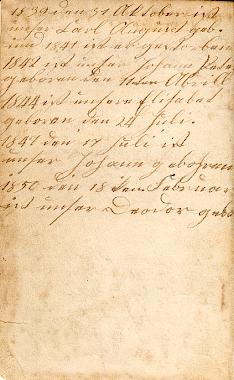 1839 den 31 Oktober ist
unser Carl August geb.
und 1841 ist er gestorben
1842 ist unser Johann
geboren den 11ten Abrill
1844 ist unsere Elisabet
geboren den 24 Juli.
1847 den 17 Juli ist
unser Johann gebohren
1850 den 18 ten Februar
ist unser Deodor geb